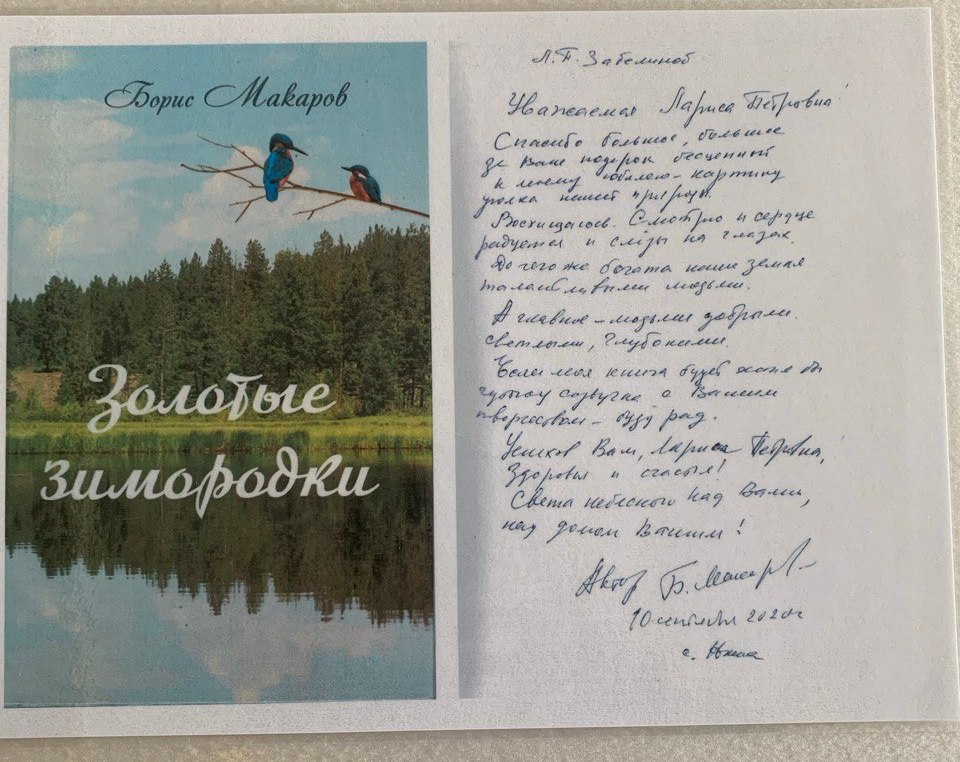 Борис Макаров
Золотые
зимородки
Л.П. Забелиной
Уважаемая Лариса Петровна!
Спасибо большое, большое
за Ваш подарок бесценный
к моему юбилею – картину
уголка нашей природы.
Восхищаюсь. Смотрю и сердце
радуется и слёзы на глазах.
До чего же богата наша земля
талантливыми людьми.
А главное – людьми добрыми,
светлыми, глубокими.
Если моя книга будет хотя бы
созвучна с Вашим
творчеством – буду рад.
Успехов Вам, Лариса Петровна,
Здоровья и счастья!
Света небесного над Вами,
над домом Вашим!
Автор Б. Макаров
10 сентября 2020г